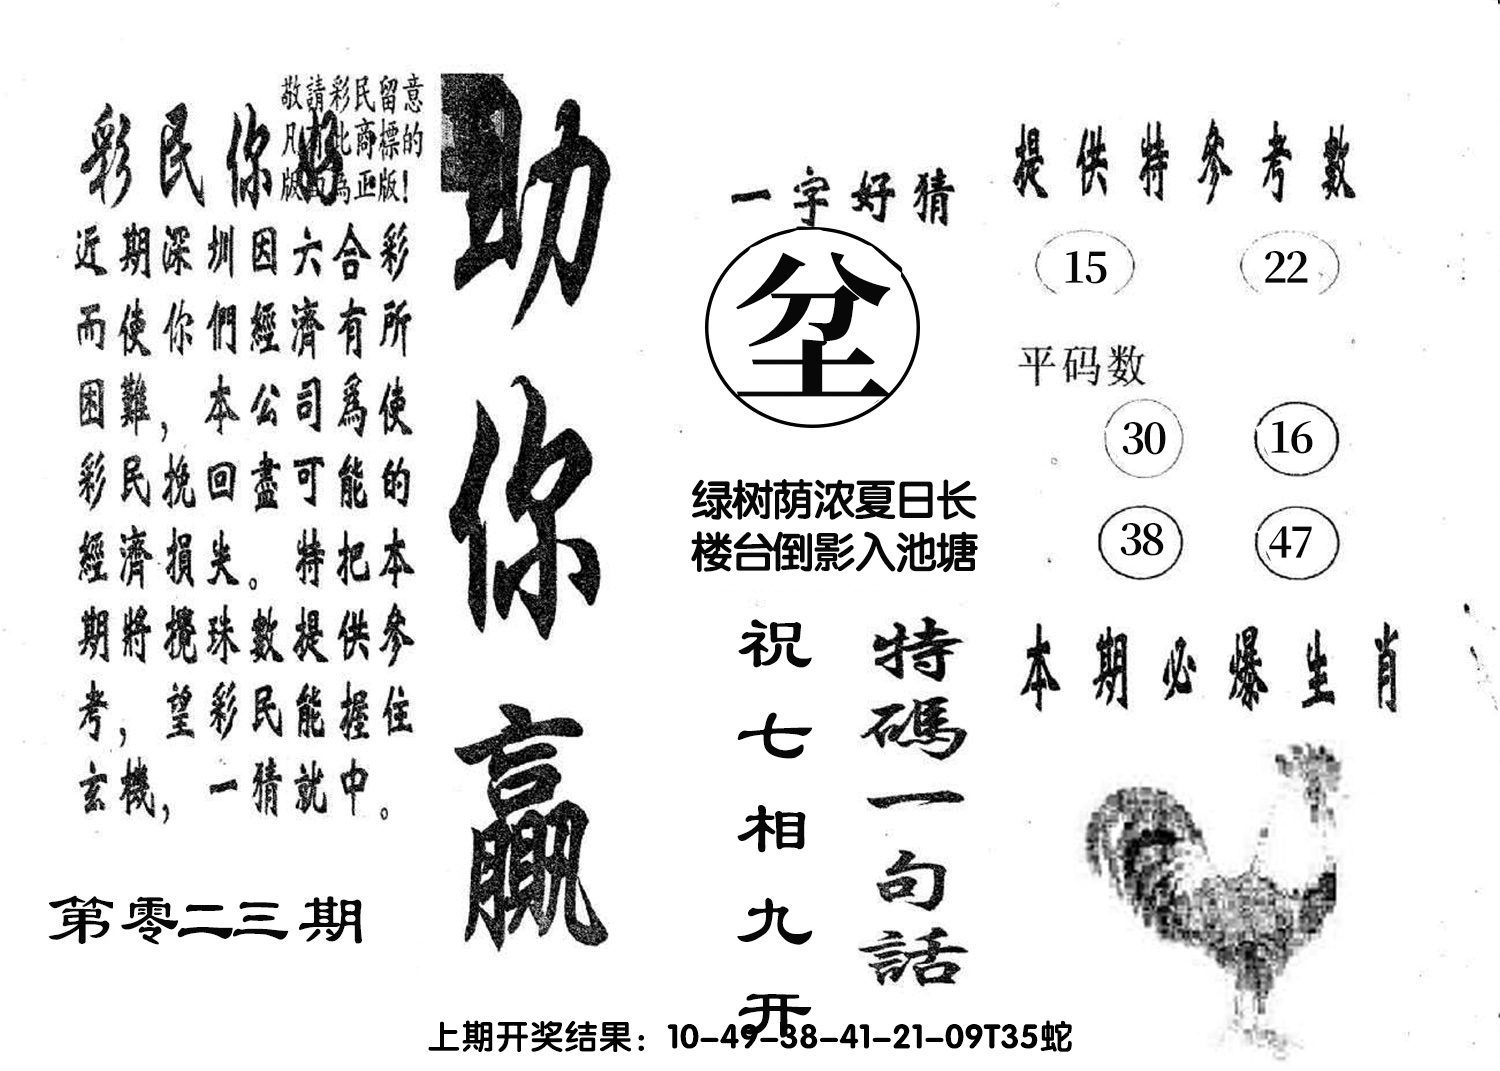 敬請彩民留意
凡有此商標的
版面為正版！
彩民你好
近期深圳因六合彩
而使你們經濟有所
困難，本公司爲使
彩民挽回盡可能的
經濟損失。特把本
期將攪珠數提供參
考，望彩民能握住
玄機，一猜就中。
第零二三期
助你贏
一字好猜
坌
绿树荫浓夏日长
楼台倒影入池塘
特碼一句話
祝七相九开
提供特參考數
15 22
平码数
30 16
38 47
本期必爆生肖
上期开奖结果：10-49-38-41-21-09T35蛇